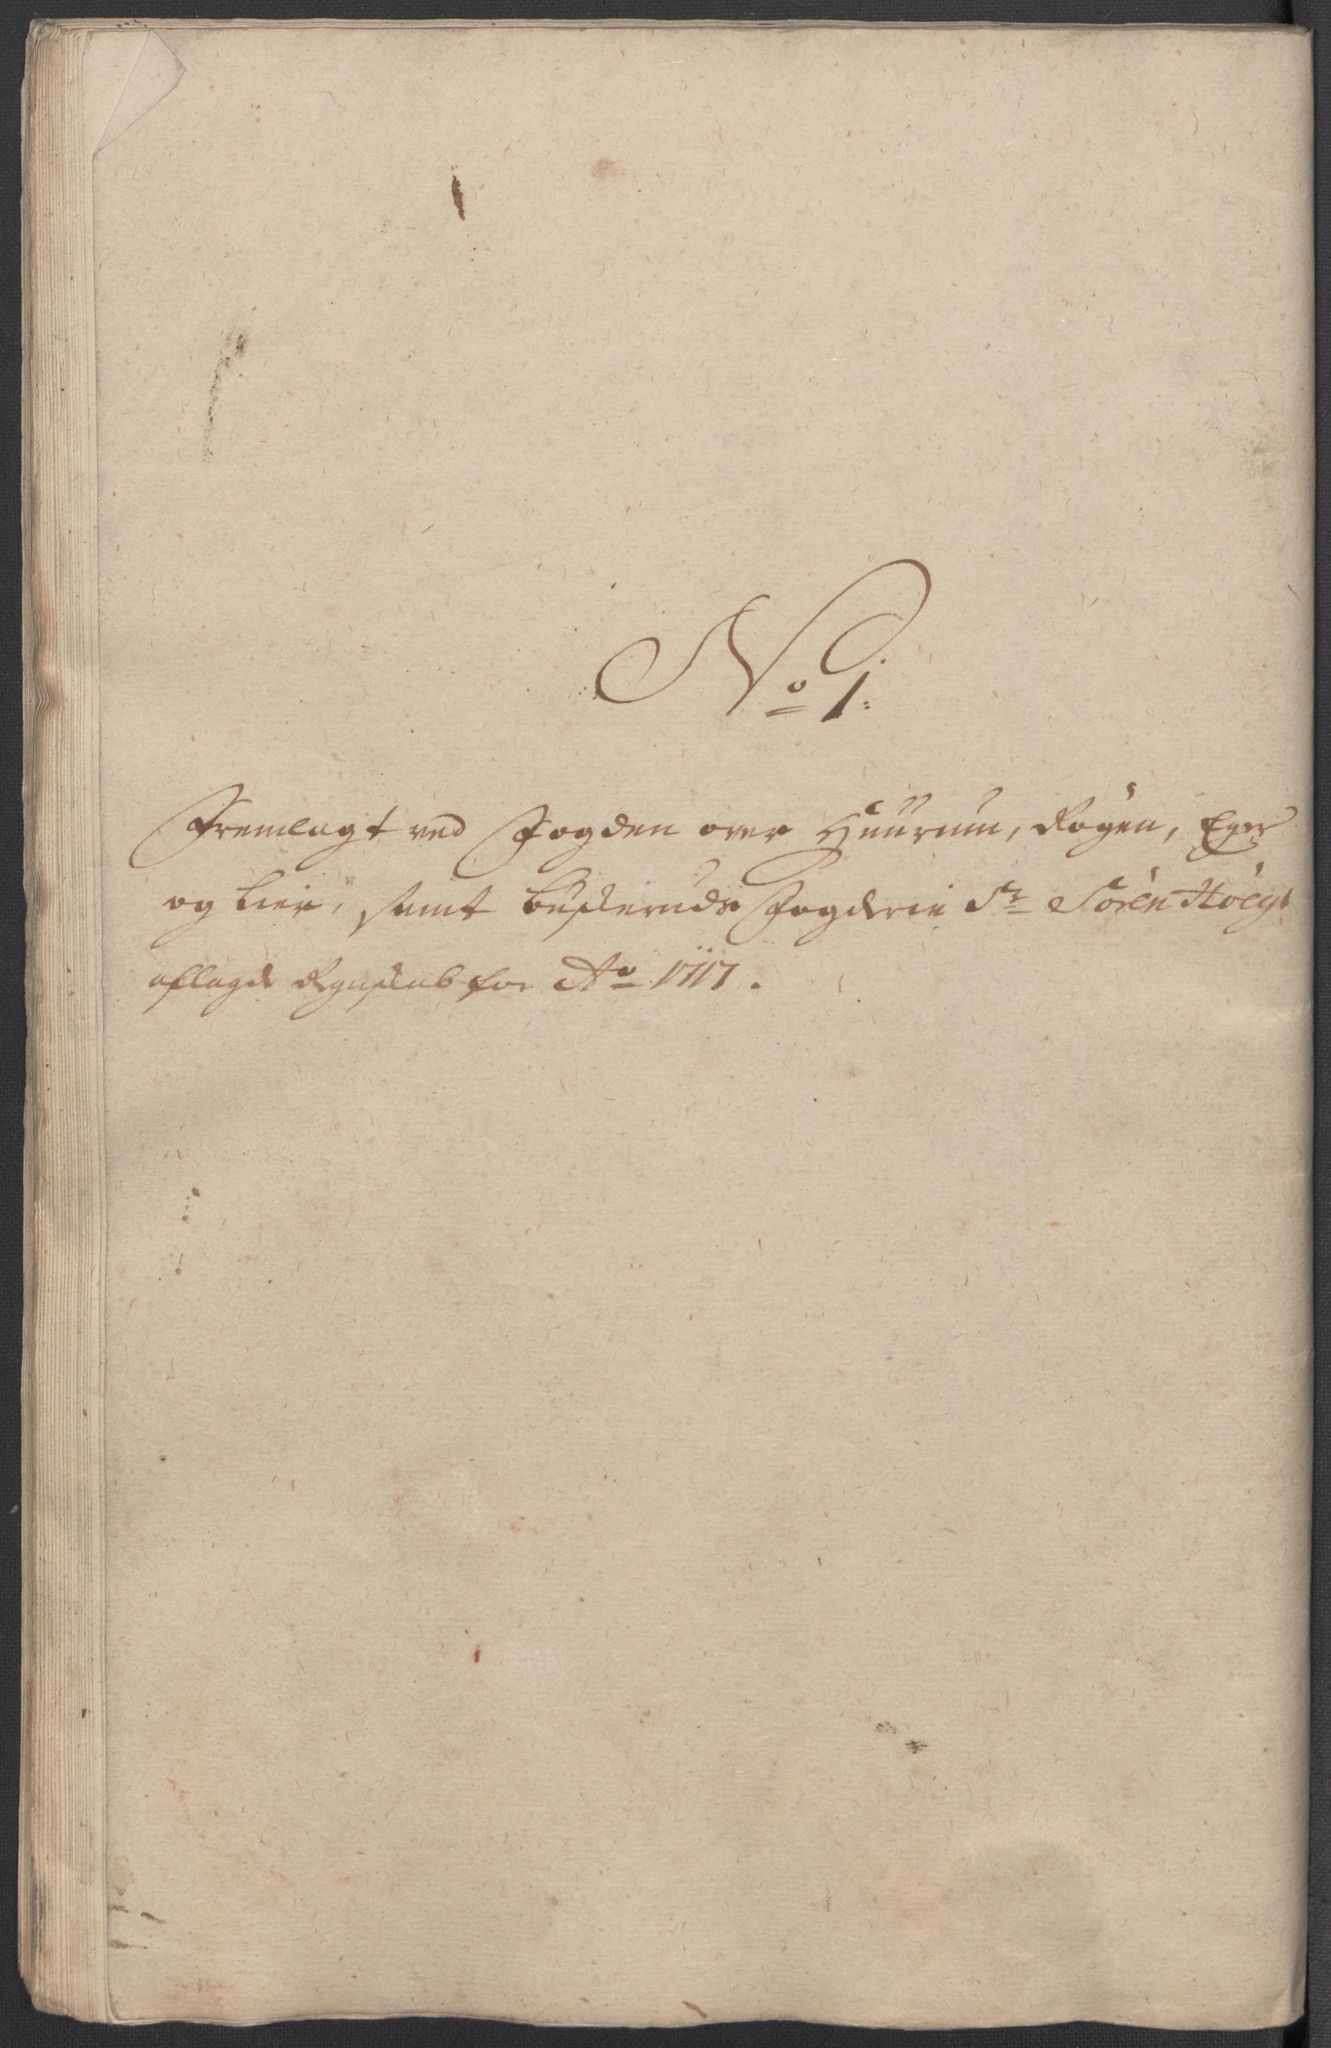 No 1:
Fremlagt ved Fogden over Huurum, Røgen, Eger
og Lier, samt Buscheruds Fogderie Sr Sören Höegs
aflagde Regnskab for Ao 1717.